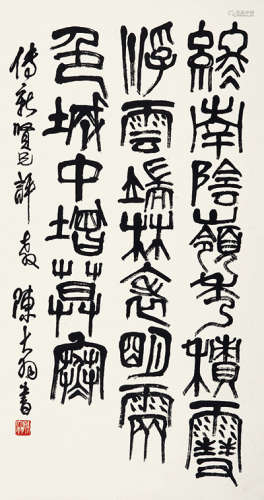 終南陰嶺秀積雪
浮雲端林表明霽
色城中增莫寒
傳新賢兄評教 陳大羽書